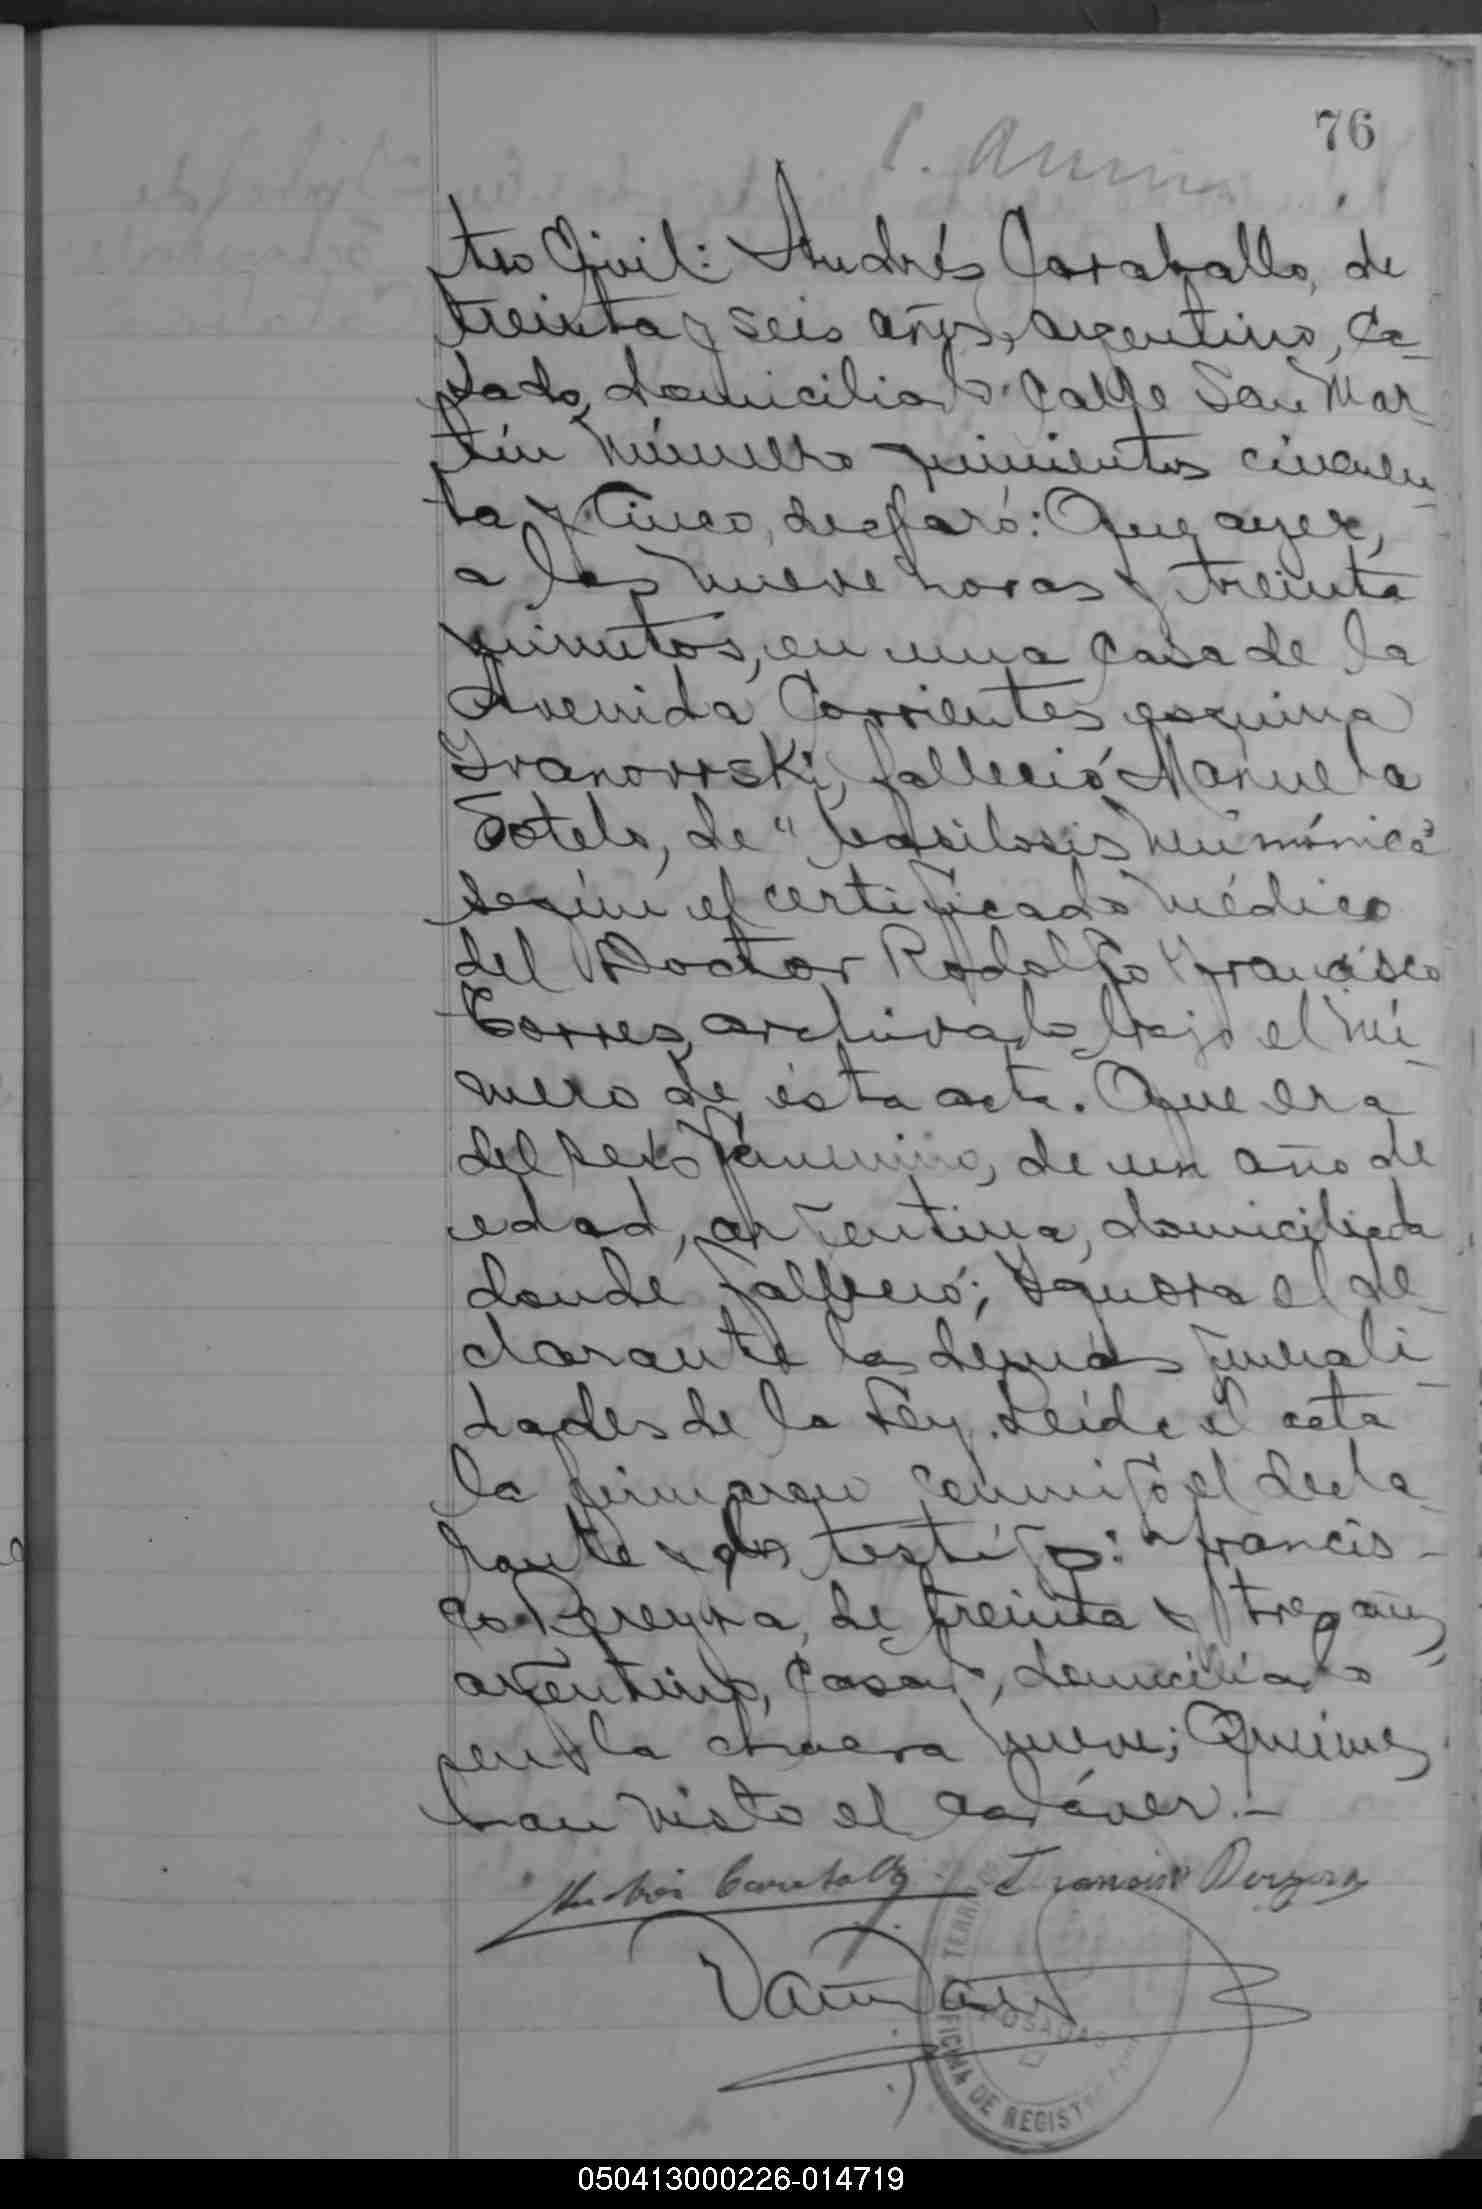 76
tro Civil: Andrés Caraballo, de
treinta y seis años, argentino, ca-
sado, domiciliado calle San Mar-
tín número quinientos cincuen-
ta y cinco, declaró: Que ayer,
a las nueve horas y treinta
minutos, en una casa de la
Avenida Corrientes esquina
Ivanowski, falleció Manuela
Sotelo, de "basilosis neumónica"
según el certificado médico
del Doctor Rodolfo Francisco
Torres, archivado bajo el nú-
mero de ésta acta. Que era
del sexo femenino, de un año de
edad, argentina, domiciliada
donde falleció; Ignora el de-
clarante las demás generali-
dades de la Ley. Leída el acta
la firmaron conmigo el decla-
rante y los testigos: Francis-
co Pereyra, de treinta y tres años,
argentino, casado, domiciliado
en la chacra nueve; Quienes
han visto el cadáver.-
Andrés Caraballo Francisco Pereyra
OFICINA DE REGISTRO
POSADAS
050413000226-014719